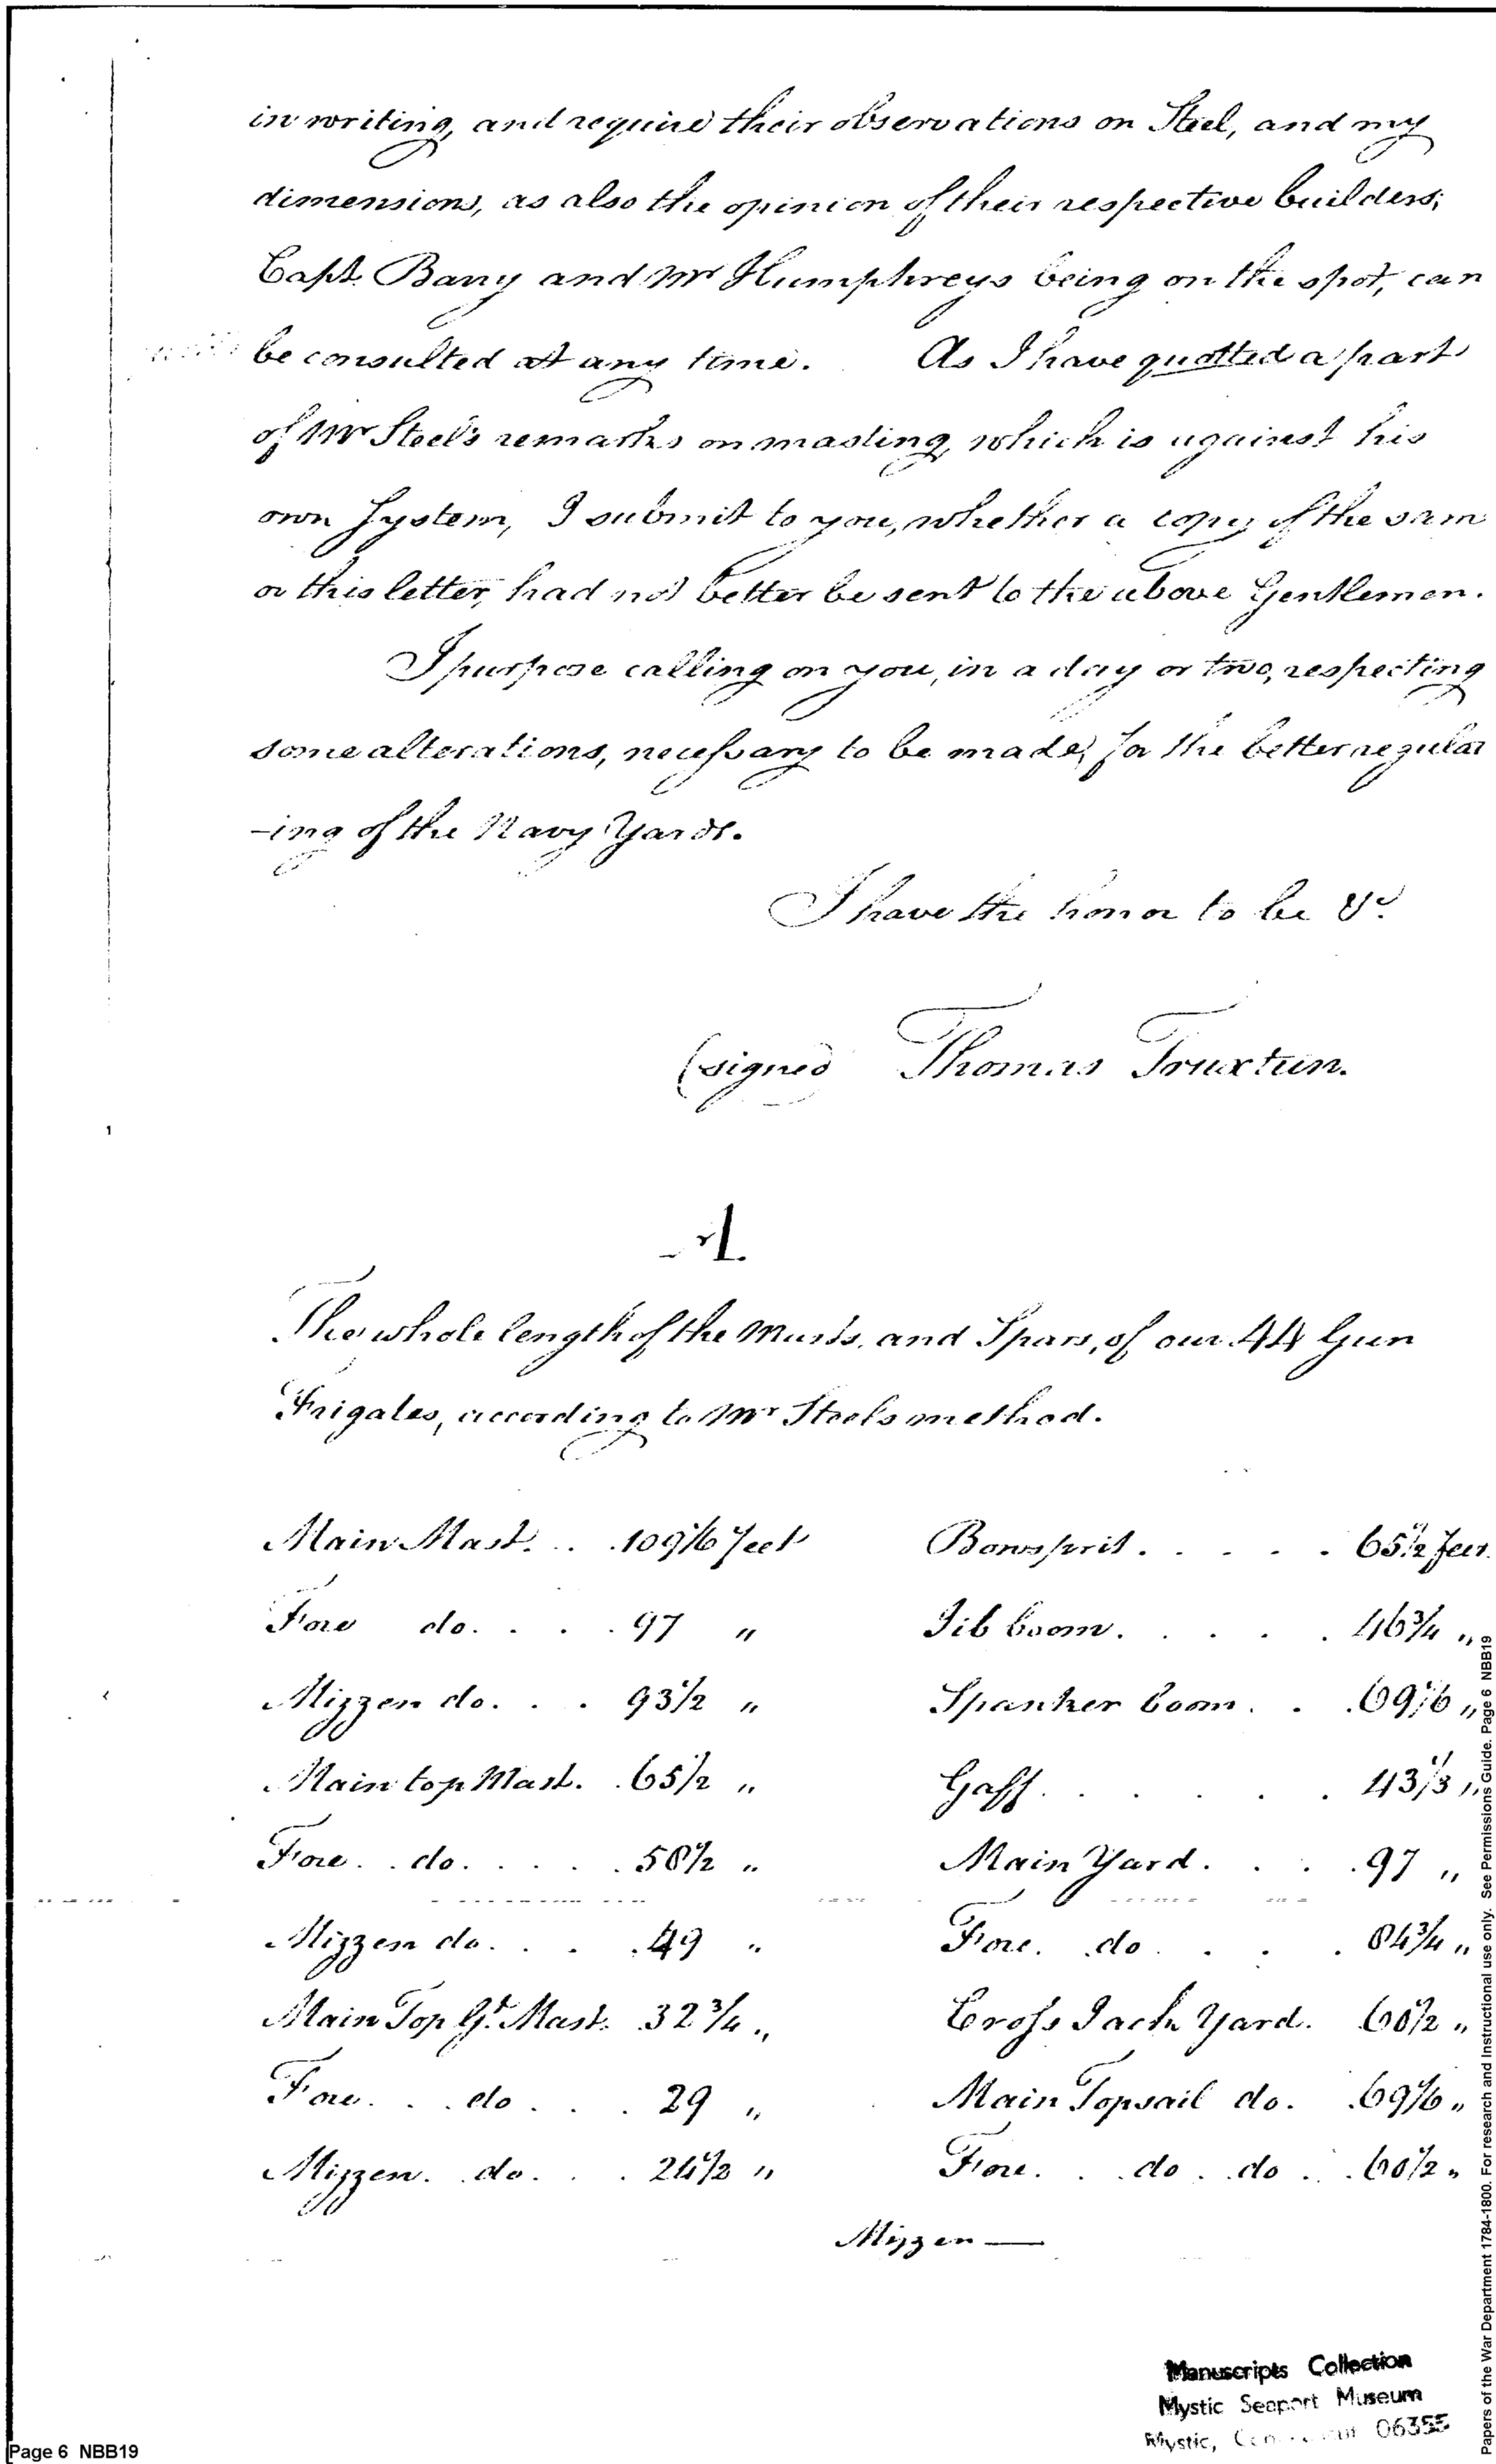 in writing, and require their observations on Steel, and my
dimensions, as also the opinion of their respective builders;
Capt. Barry and Mr Humphreys being on the spot, can
be consulted at any time. As I have quotted a part
of Mr Steel's remarks on masting, which is against his
own System, I submit to you, whether a copy of the same
or this letter, had not better be sent to the above Gentlemen.
I purpose calling on you, in a day or two, respecting
some alterations, necessary to be made, for the better regulat
-ing of the Navy Yards.
I have the honor to be &c.
(signed) Thomas Truxtun.
A.
The whole length of the Masts, and Spars, of our 44 Gun
Frigates, according to Mr Steels method.
Main Mast. . . 109 1/6 feet Bowsprit . . . . . 65 1/2 feet.
Fore do. . . . 97 " Jib boom . . . . . 46 3/4 "
Mizzen do. . . 93 1/2 " Spanker boom . . . 69 1/6 "
Main top Mast. . 65 1/2 " Gaff . . . . . . 43 1/3 "
Fore . . do. . . . . 58 1/2 " Main Yard . . . . 97 "
Mizzen do. . . . 49 " Fore . do . . . . 84 3/4 "
Main Top Gt. Mast. 32 3/4 " Cross Jack Yard. 60 1/2 "
Fore . . . do . . . 29 " Main Topsail do. . 69 1/6 "
Mizzen . . do . . . 24 1/2 " Fore . . . do . . do . . . 60 1/2 "
Mizzen —
Manuscripts Collection
Mystic Seaport Museum
Mystic, Connecticut 06355
Page 6 NBB19
Papers of the War Department 1784-1800. For research and Instructional use only. See Permissions Guide. Page 6 NBB19